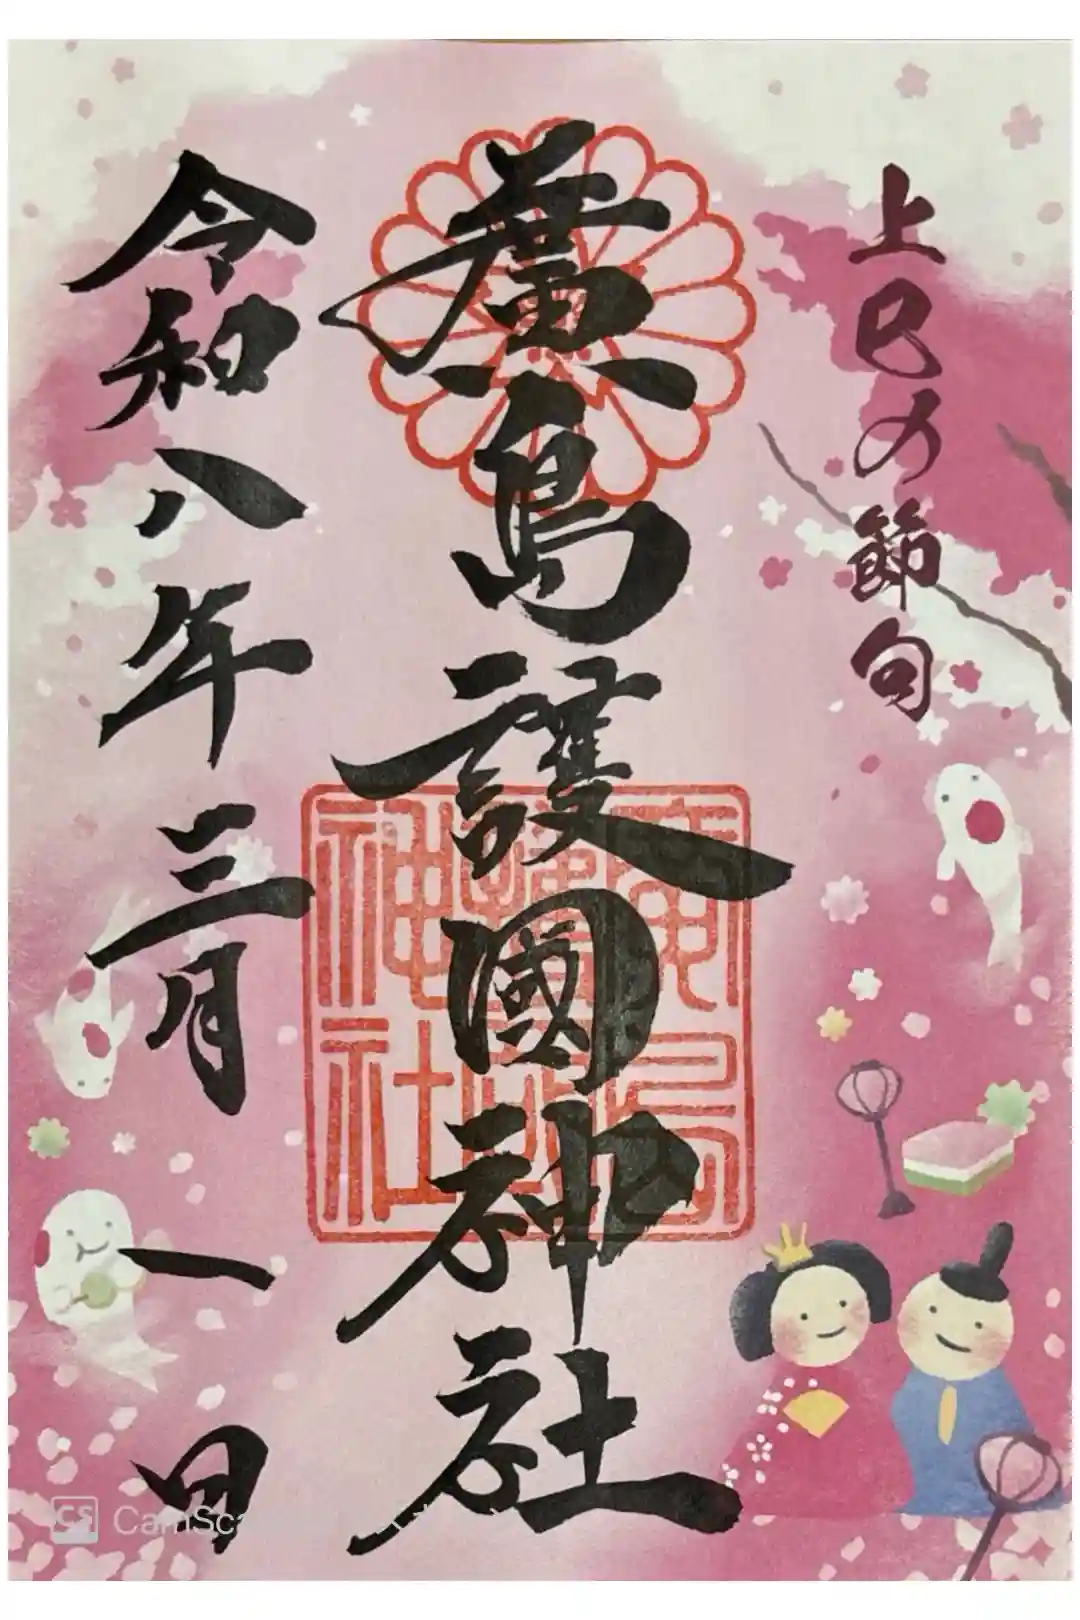 上巳の節句
廣島護國神社
廣島護國神社
令和八年三月一日
CS CamSca